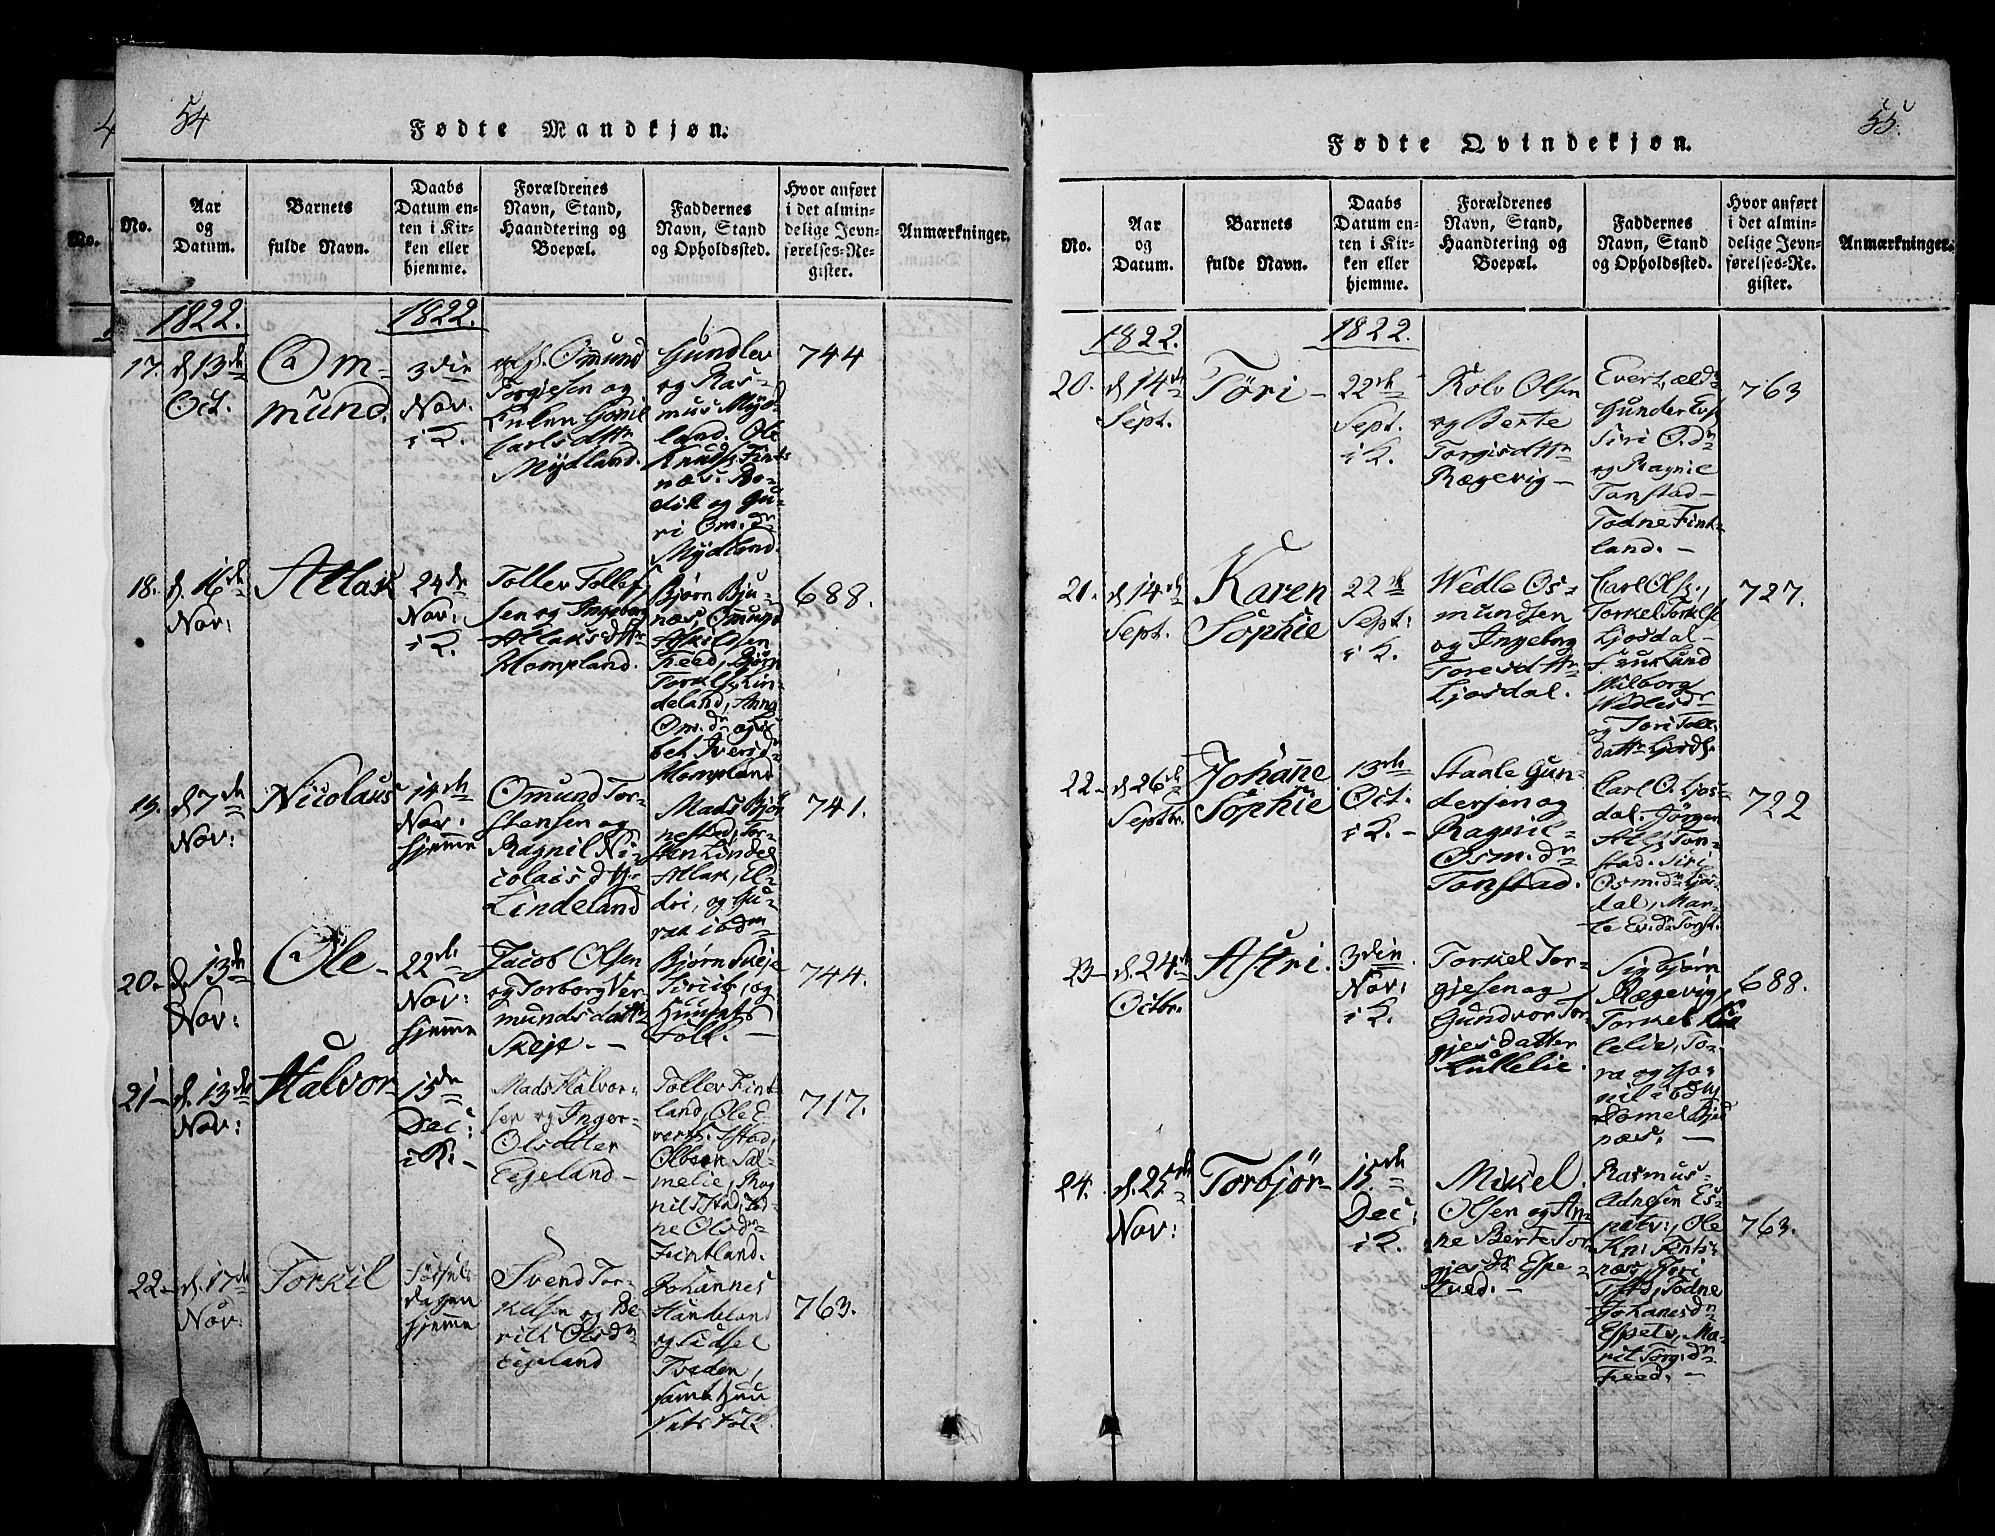 54
Fødte Mandkjøn.
No.
Aar
og
Datum.
Barnets
fulde Navn.
Daabs
Datum en-
ten i Kir-
ken eller
hjemme.
Forældrenes
Navn, Stand,
Haandtering og
Boepæl.
Faddernes
Navn, Stand
og Opholdssted.
Hvor anført
i det almin-
delige Jevn-
førelses-Re-
gister.
Anmærkninger.
1822.
1822.
17.
d. 13de
Oct.
Om-
mund.
3din
Nov.
i K.
Omund
Torgiesen og
Gunil
Carlsdttr
Mydland.
Gundlev
og Ras-
mus Myd-
land. Ole
Knuds. Fints
næs. Bo-
dil og Gu-
ri Om.dr
Mydland.
744
18.
d. 16de
Nov:
Atlak
24de
Nov:
i K.
Tollev Tollef
sen og Ingeborg
Atlaksdttr
Hompland.
Bjørn Bju-
næs, Omund
Askildsen
Freed, Bjørn
Torkelss. Lin-
deland, Anna
Om.dr og Lis
bet Iversdr
Hompland
688.
19.
d. 7de
Nov:
Nicolaus
14de
Nov:
hjemme
Omund Tor-
stensen og
Ragnil Ni-
colaisdttr
Lindeland
Mads Bjør
nestad, Tor-
sten Lindel
Atlak, El-
dri, og Gu-
raa ibdm
741.
20.
d. 13de
Nov:
Ole-
22de
Nov:
hjemme
Jacob Olsen
og Torborg Ver-
mundsdatter
Skeje. -
Bjørn Skeje
Siri ib, og
Huusets
Folk. -
744.
21-
d. 13de
Nov:
Halvor-
15de
Dec:
i K. -
Mads Halvor-
sen og Inger
Olsdatter
Eegeland-
Tollev Fint
land, Ole E
verts. Tstad,
Olbern Sal-
melie, Rag
nil Tstad, Tod-
ne Olsdr
Fintland.
717.
22-
d. 17de
Nov:
Torkil
Fødsels-
dagen
hjemme
Svend Tor-
kelsen og Be
rith Olsdr
Eegeland
Johannes
Handeland
og Sidsel
Tveden,
samt Huu
sets Folk
763.
55.
Fødte Qvindekjøn.
No.
Aar
og
Datum.
Barnets
fulde Navn.
Daabs
Datum en-
ten i Kir-
ken eller
hjemme.
Forældrenes
Navn, Stand,
Haandtering og
Boepæl.
Faddernes
Navn, Stand
og Opholdssted.
Hvor anført
i det almin-
delige Jevn-
førelses-Re-
gister.
Anmærkninger.
1822.
1822.
20.
d. 14de
Sept.
Tøri-
22de
Sept.
i K.
Rolv Olsen
og Berte
Torgisdttr
Rægevig-
Evert, æld:
Gunder Evs
Siri O.dr
og Ragnil
Tonstad-
Todne Fint-
land. -
763
21.
d. 14de
Sept.
Karen
Sophie
22de
Sept:
i K.
Wedle Os-
mundsen
og Ingeborg
Toresdttr
Ljosdal.
Carl Ols.,
Torkel Torkels
Ljosdal-
Wilborg
Wedlesd
og Tori Toll.
dattr Ljosdl.
727.
22-
d. 26de
Septbr.
Johanne
Sophie
13de
Oct.
i K. -
Staale Gun-
dersen og
Ragnil-
Osm.dr
Tonstad.
Carl O. Ljos-
dal. Jørgen
Atls. Ton-
stad. Siri
Osm.dr Ljos-
dal, Mar-
te Ev.dr Tonst.
722
23-
d. 24de
Octbr.
Astri.
3din
Nov:
i K.
Torkel Tor-
gjesen og
Gundvor Tor-
gjesdatter
Lillelie.
Sigbjørn
Rægevig,
Torkel Lil
lelie, To-
ra og Go-
nil ibdm
Samel Bju
næs. -
688.
24.
d. 25de
Nov:
Torbjør-
15de
Dec:
i K.
Mikel
Olsen og An-
ne Berte Tor
gjesdr Espe-
tved. -
Rasmus
Adnesen Es-
petv:, Ole
Kn: Fints-
næs, Tori
Tstd, Todne
Johanesdr
Espetv, Ma-
rit Torg:dr
Freed. -
763.